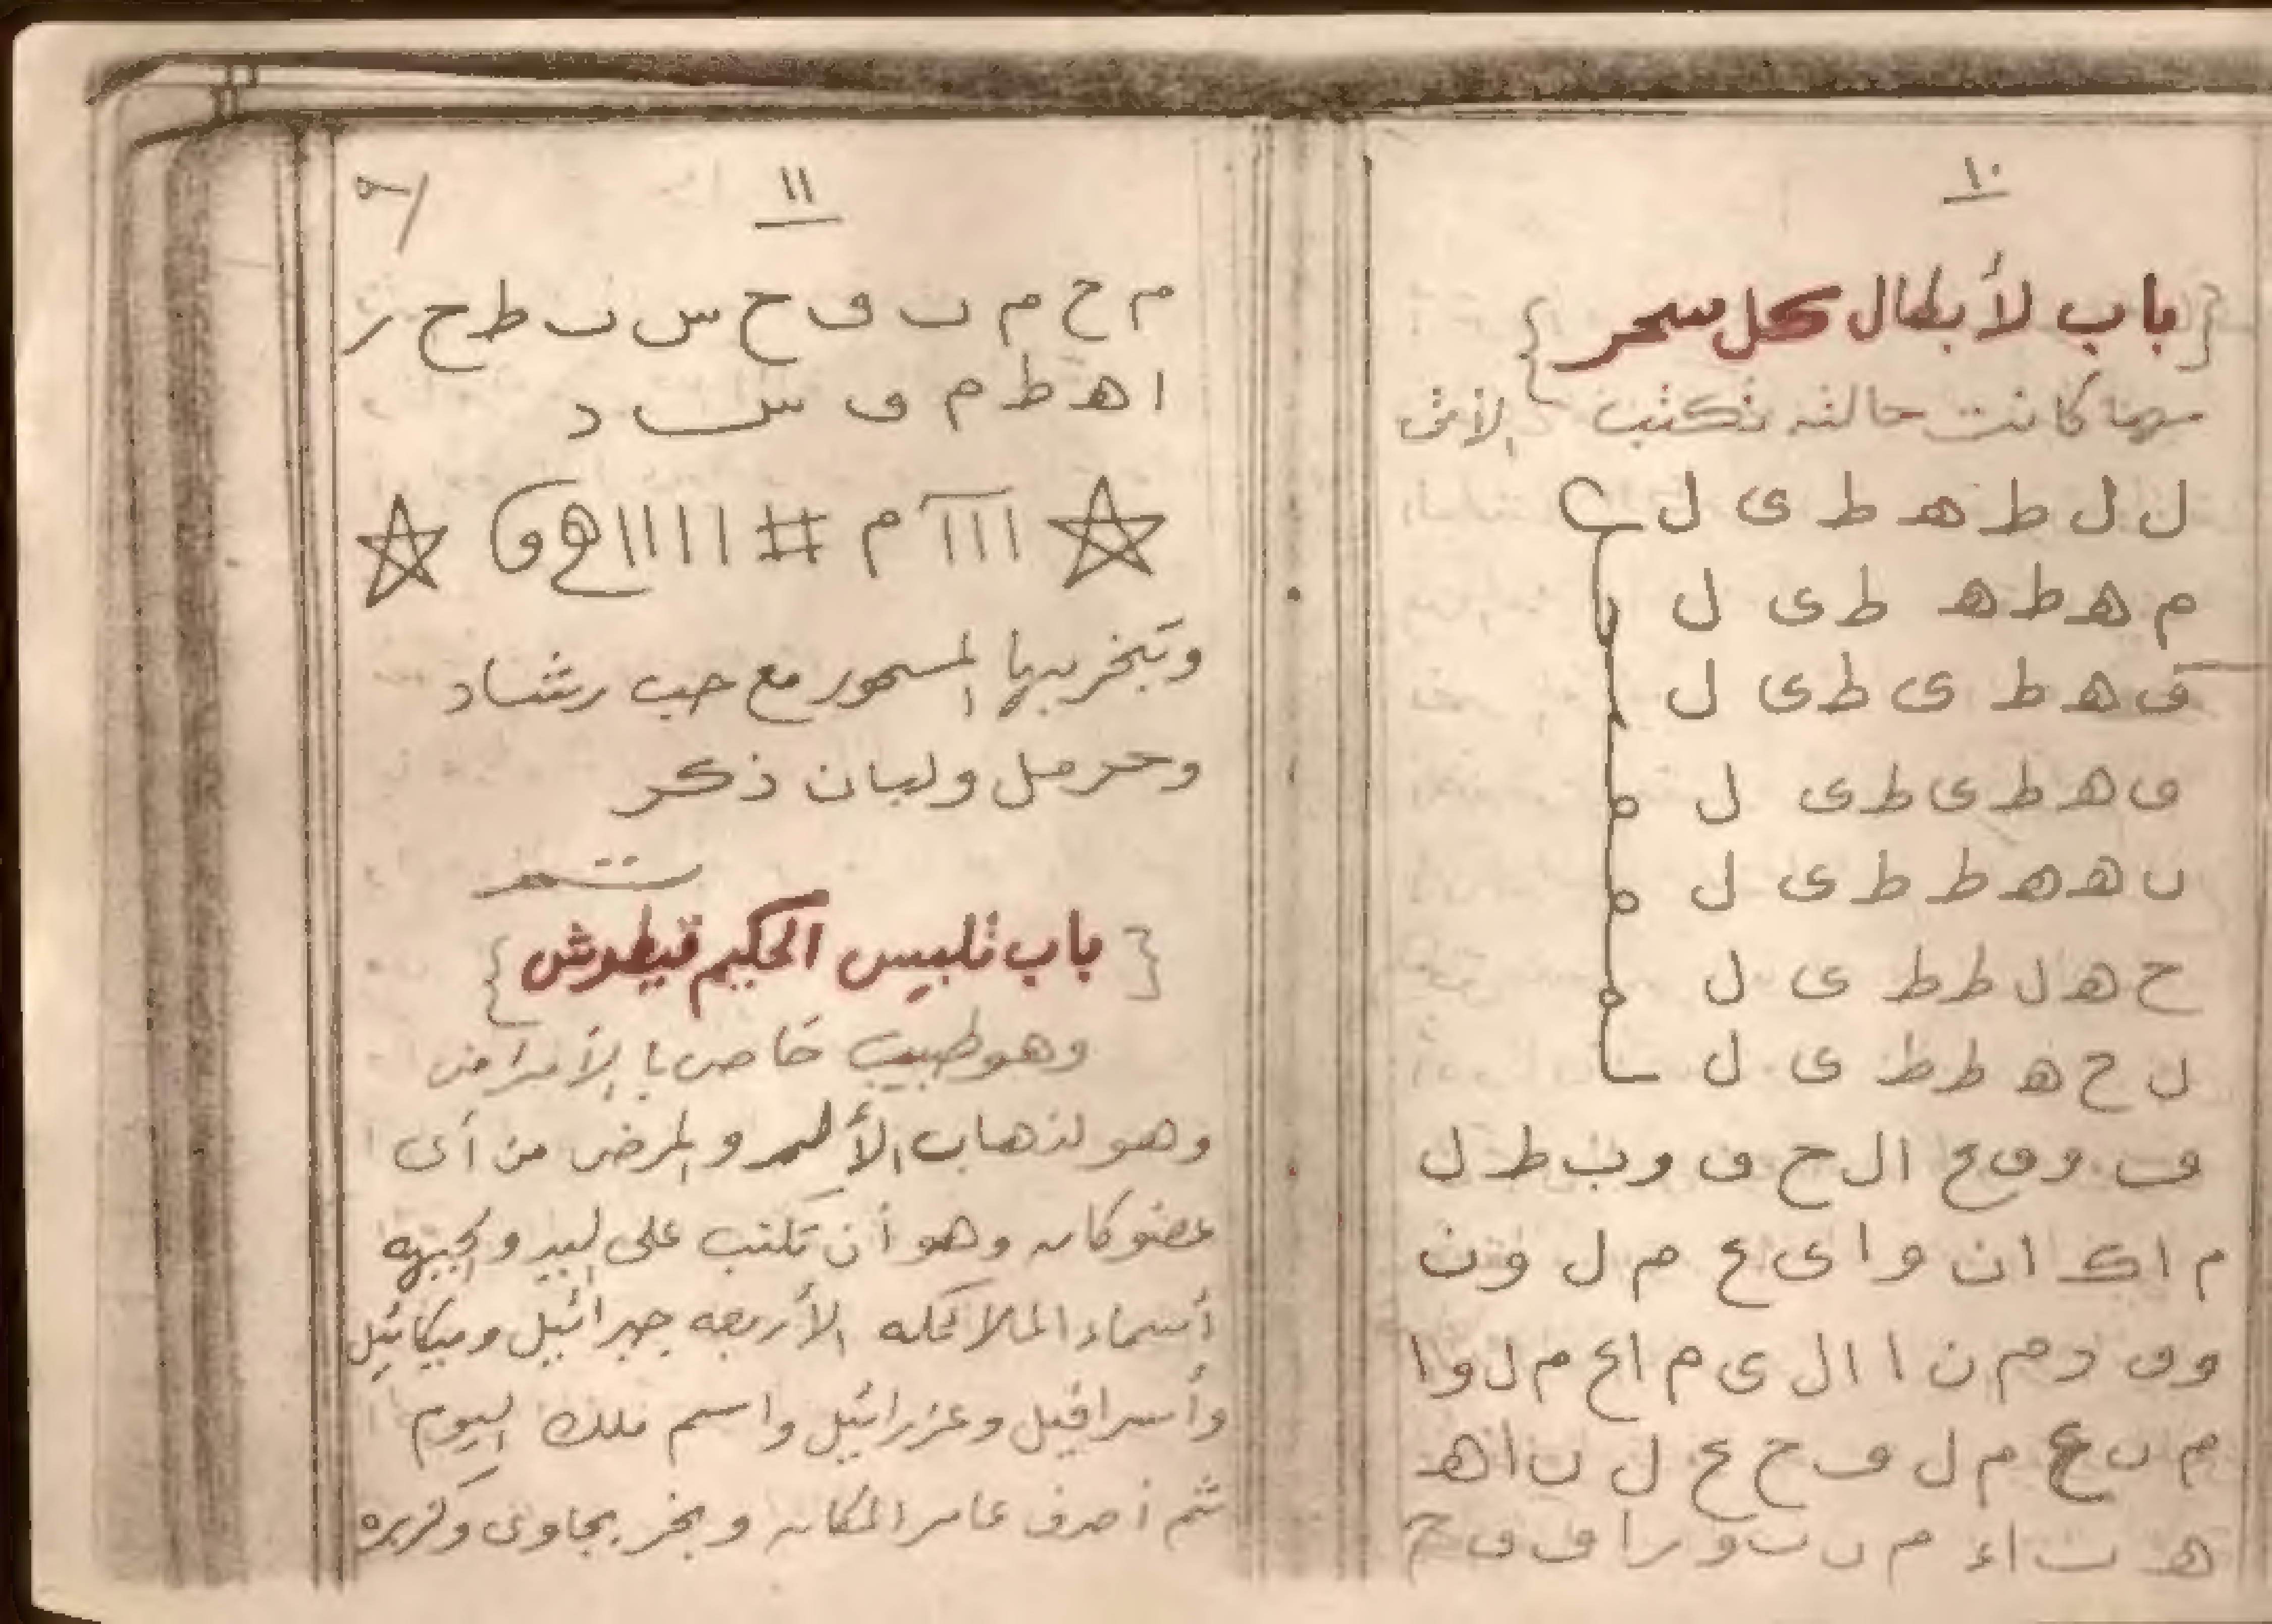 ١٠
{ باب لأبطال كل سحر }
مهما كانت حالته تكتب الأتى
ل ل ط ه ط ى ل
م ه ط ه ط ى ل
ف ه ط ى ط ى ل
ف ه ط ى ط ى ل
ں ه ه ط ط ى ل
ح ه ل ط ط ى ل
ل ح ه ط ط ى ل
ف و ق ع ا ل ح ق و ب ط ل
م ا ك ا ن و ا ى ع م ل و ن
و ق د م ن ا ا ل ى م ا ع م ل و ا
م ں ع م ل ف ح ع ل ں ا ه
ه ٮ ا ء م ں ٮ و ر ا ف ق ح
١١
م ح م ں ق ح س ٮ ط ح ر
ا ه ط م ق س د
☆ ااا م # ااااا ه و ☆
وتبخر بيها المسحور مع حب رشاد
وحرمل ولبان ذكر
تتم
{ باب تلبيس الحكيم قيطوش }
وهو طبيب خاص با الأمراض
وهو لذهاب الألم والمرض من أى
عضو كان وهو أن تكتب على اليد والجبهه
أسماء الملائكه الأربعه جبرائيل وميكائيل
وأسرافيل وعزرائيل واسم ملك اليوم
ثم أصرف عامر المكان وبخر بجاوى وكزبره